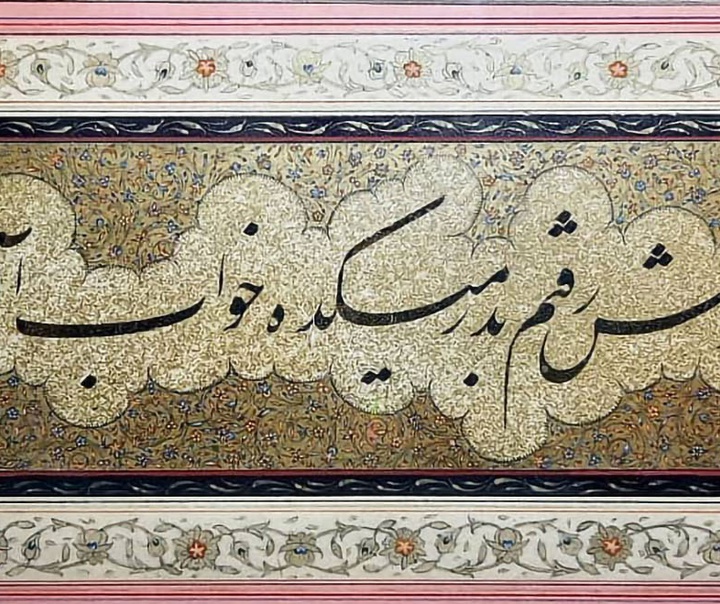 ش رفتم بدر میکده خواب آ